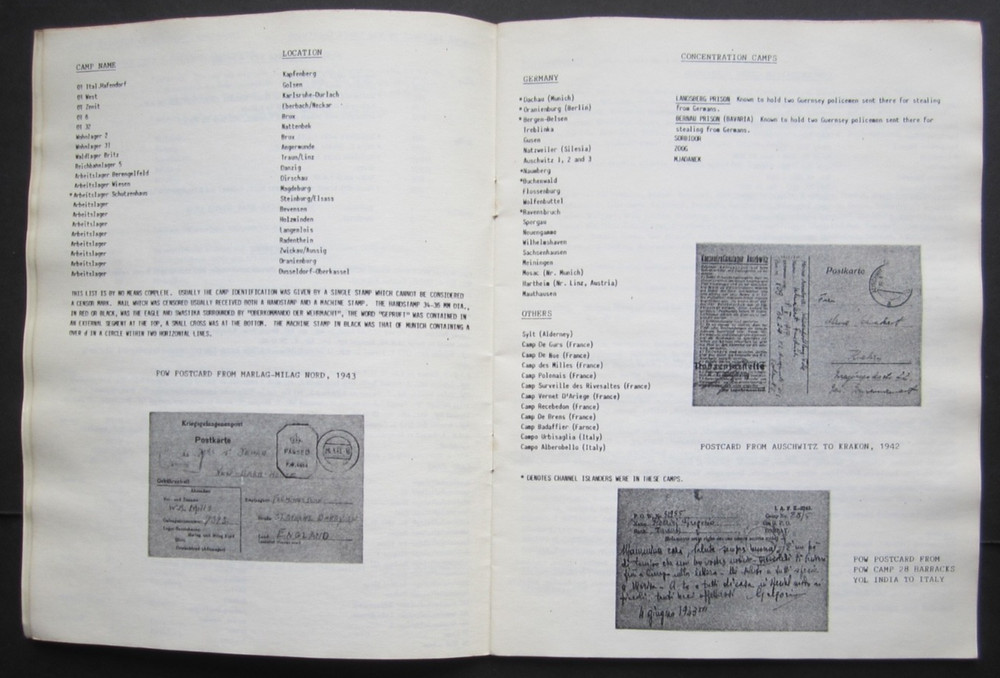 CAMP NAME LOCATION
01 Ital.Hafendorf Kapfenberg
01 West Golsen
01 Zenit Karlsruhe-Durlach
01 6 Eberbach/Neckar
01 32 Brox
Wohnlager 2 Mattenbek
Wohnlager 31 Brux
Waldlager Britz Angermunde
Reichbahnlager 5 Traun/Linz
Arbeitslager Danzig
Arbeitslager Wiesen Dirschau
*Arbeitslager Schutzenhaus Magdeburg
Arbeitslager Steinburg/Elsass
Arbeitslager Bevensen
Arbeitslager Holzminden
Arbeitslager Langenlois
Arbeitslager Radenthein
Arbeitslager Zwickau/Aussig
Arbeitslager Oranienburg
Arbeitslager Dusseldorf-Oberkassel
THIS LIST IS BY NO MEANS COMPLETE. USUALLY THE CAMP IDENTIFICATION WAS GIVEN BY A SINGLE STAMP WHICH CANNOT BE CONSIDERED
A CENSOR MARK. MAIL WHICH WAS CENSORED USUALLY RECEIVED BOTH A HANDSTAMP AND A MACHINE STAMP. THE HANDSTAMP 34-36 MM DIA.,
IN RED OR BLACK, WAS THE EAGLE AND SWASTIKA SURROUNDED BY "OBERKOMMANDO DER WEHRMACHT", THE WORD "GEPRUFT" WAS CONTAINED IN
AN EXTERNAL SEGMENT AT THE TOP, A SMALL CROSS WAS AT THE BOTTOM. THE MACHINE STAMP IN BLACK WAS THAT OF MUNICH CONTAINING A
OVER d IN A CIRCLE WITHIN TWO HORIZONTAL LINES.
POW POSTCARD FROM MARLAG-MILAG NORD, 1943
Kriegsgefangenenpost
Postkarte
Gebührenfrei
ENGLAND
CONCENTRATION CAMPS
GERMANY
*Dachau (Munich)
*Oranienburg (Berlin)
*Bergen-Belsen
Treblinka
Gusen
Natzweiler (Silesia)
Auschwitz 1, 2 and 3
*Naumberg
*Buchenwald
Flossenburg
Wolfenbuttel
*Ravensbruch
Spergau
Neuengamme
Wilhelmshaven
Sachsenhausen
Meiningen
Mosac (Nr. Munich)
Hartheim (Nr. Linz, Austria)
Mauthausen
LANDSBERG PRISON Known to hold two Guernsey policemen sent there for stealing
from Germans.
BERNAU PRISON (BAVARIA) Known to hold two Guernsey policemen sent there for
stealing from Germans.
SORBIDOR
ZOGG
MJADANEK
OTHERS
Sylt (Alderney)
Camp De Gurs (France)
Camp De Noe (France)
Camp des Milles (France)
Camp Polonais (France)
Camp Surveille des Rivesaltes (France)
Camp Vernet D'Ariege (France)
Camp Recebedon (France)
Camp De Brens (France)
Camp Badaffier (Farnce)
Campo Urbisaglia (Italy)
Campo Alberobello (Italy)
* DENOTES CHANNEL ISLANDERS WERE IN THESE CAMPS.
Konzentrationslager Auschwitz
Postkarte
POSTCARD FROM AUSCHWITZ TO KRAKON, 1942
4 giugno 1943
POW POSTCARD FROM
POW CAMP 28 BARRACKS
YOL INDIA TO ITALY